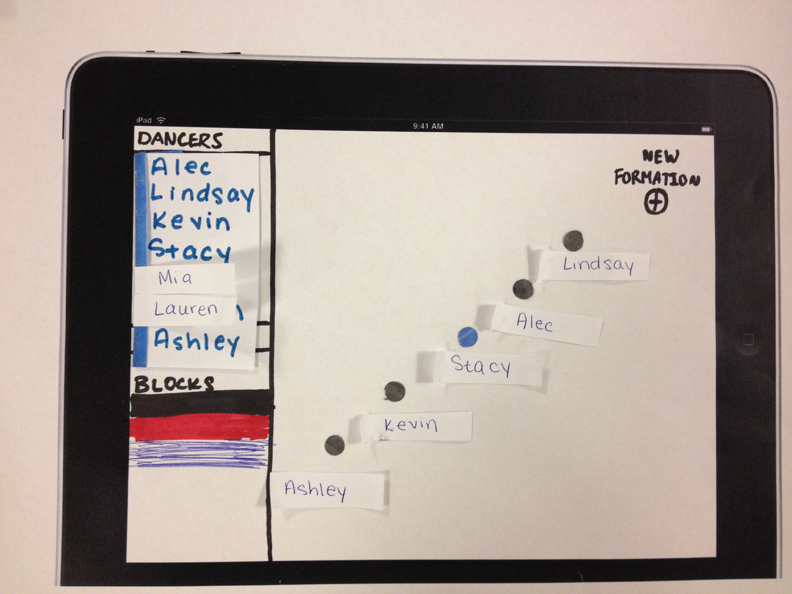 iPad
9:41 AM
DANCERS
Alec
Lindsay
Kevin
Stacy
Mia
Lauren
Ashley
BLOCKS
NEW
FORMATION
+
Lindsay
Alec
Stacy
Kevin
Ashley